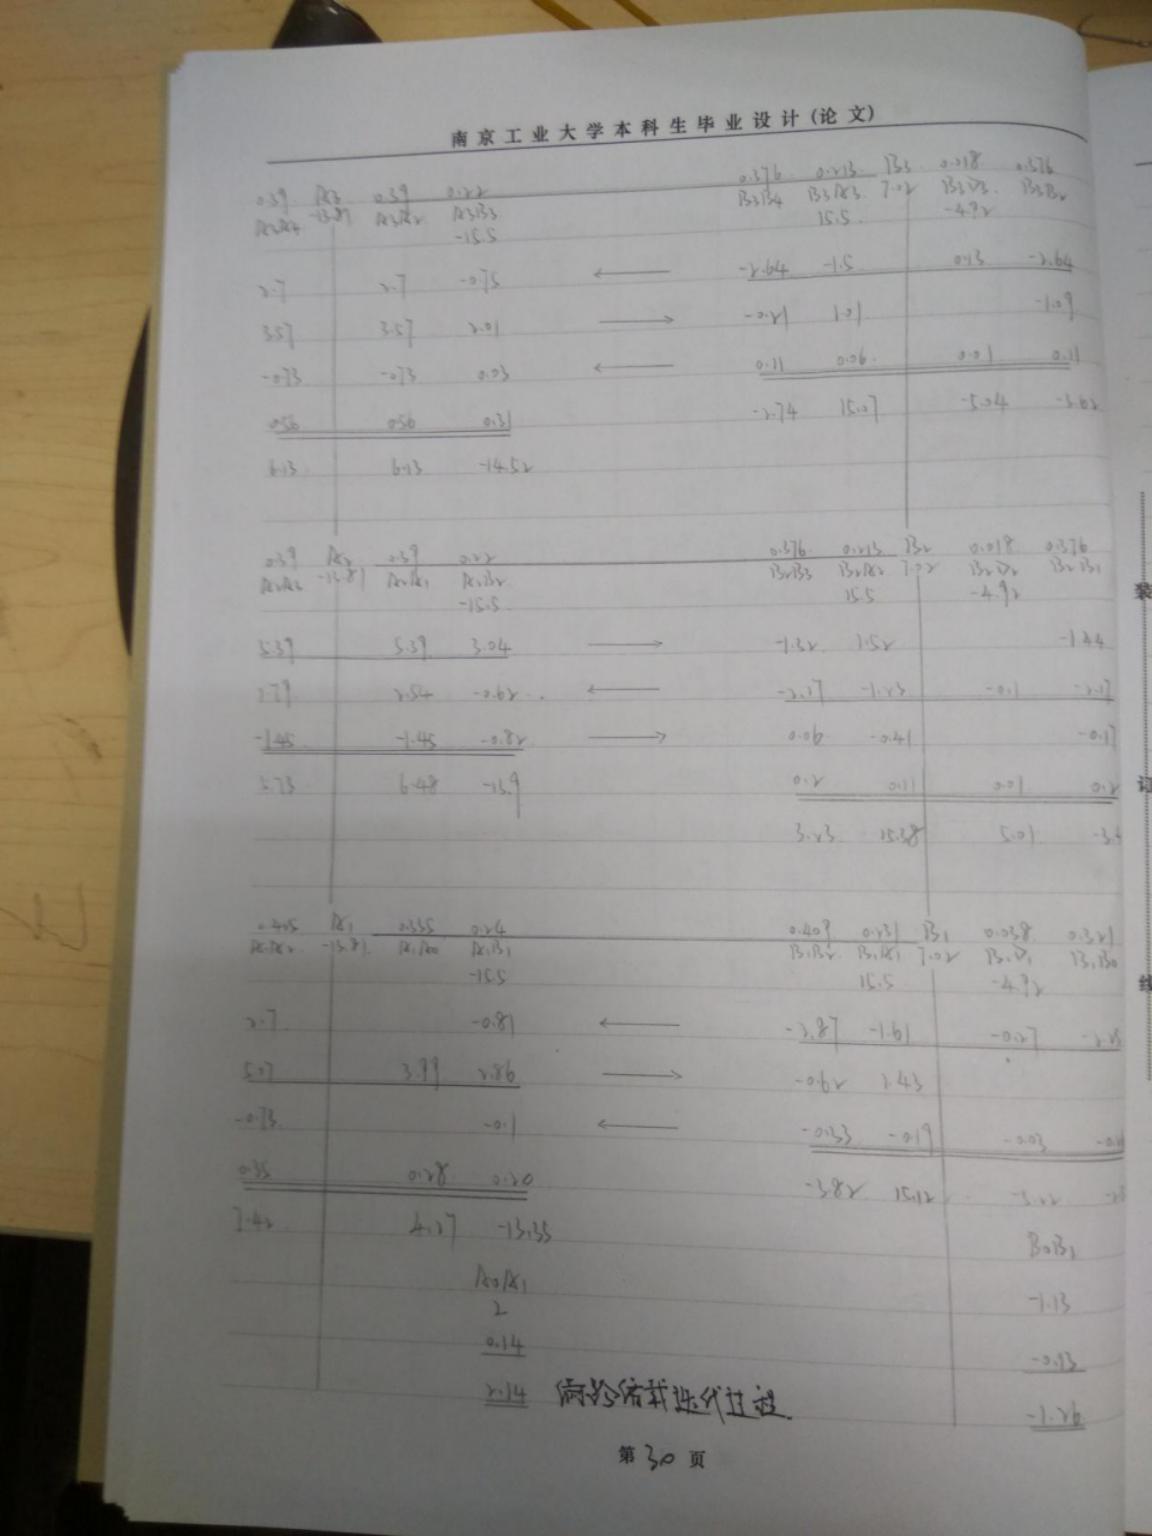 南京工业大学本科生毕业设计(论文)
0.39 A3 0.39 0.22 0.376 0.213 B3 0.018 0.376
-13.81 A3A2 A3B3 B3B4 B3A3 7.02 B3D3 B3B2
-15.5 15.5 -4.92
2.7 2.7 -0.75 ← -2.64 -1.5 0.13 -2.64
3.57 3.57 2.01 → -0.21 1.01 -1.09
-0.73 -0.73 0.03 ← 0.11 0.06 0.01 0.11
0.56 0.56 0.31 -2.74 15.07 -5.04 -3.62
6.13 6.13 -14.52
0.39 A2 0.39 0.22 0.376 0.213 B2 0.018 0.376
A2A3 -13.81 A2A1 A2B2 B2B3 B2A2 7.02 B2D2 B2B1
-15.5 15.5 -4.92
5.39 5.39 3.04 → -1.32 1.52 -1.44
2.54 -0.62 ← -2.17 -1.23 -0.1 -2.17
-1.45 -1.45 -0.82 → 0.06 -0.41 -0.17
5.73 6.48 -13.9 0.2 0.11 0.01 0.2
3.23 15.38 5.01
0.405 A1 0.335 0.24 0.409 0.231 B1 0.038 0.321
A1A2 -13.81 A1A0 A1B1 B1B2 B1A1 7.02 B1D1 B1B0
-15.5 15.5 -4.92
2.7 -0.81 ← -2.87 -1.61 -0.27
5.07 3.99 2.86 → -0.62 1.43
-0.73 -0.1 ← -0.33 -0.19 -0.03
0.35 0.28 0.20 -3.82 15.12
7.42 4.27 -13.35 B0B1
A0A1
2 -1.13
0.14 -0.13
2.14 载迭代过程 -1.26
第30页
装
订
线